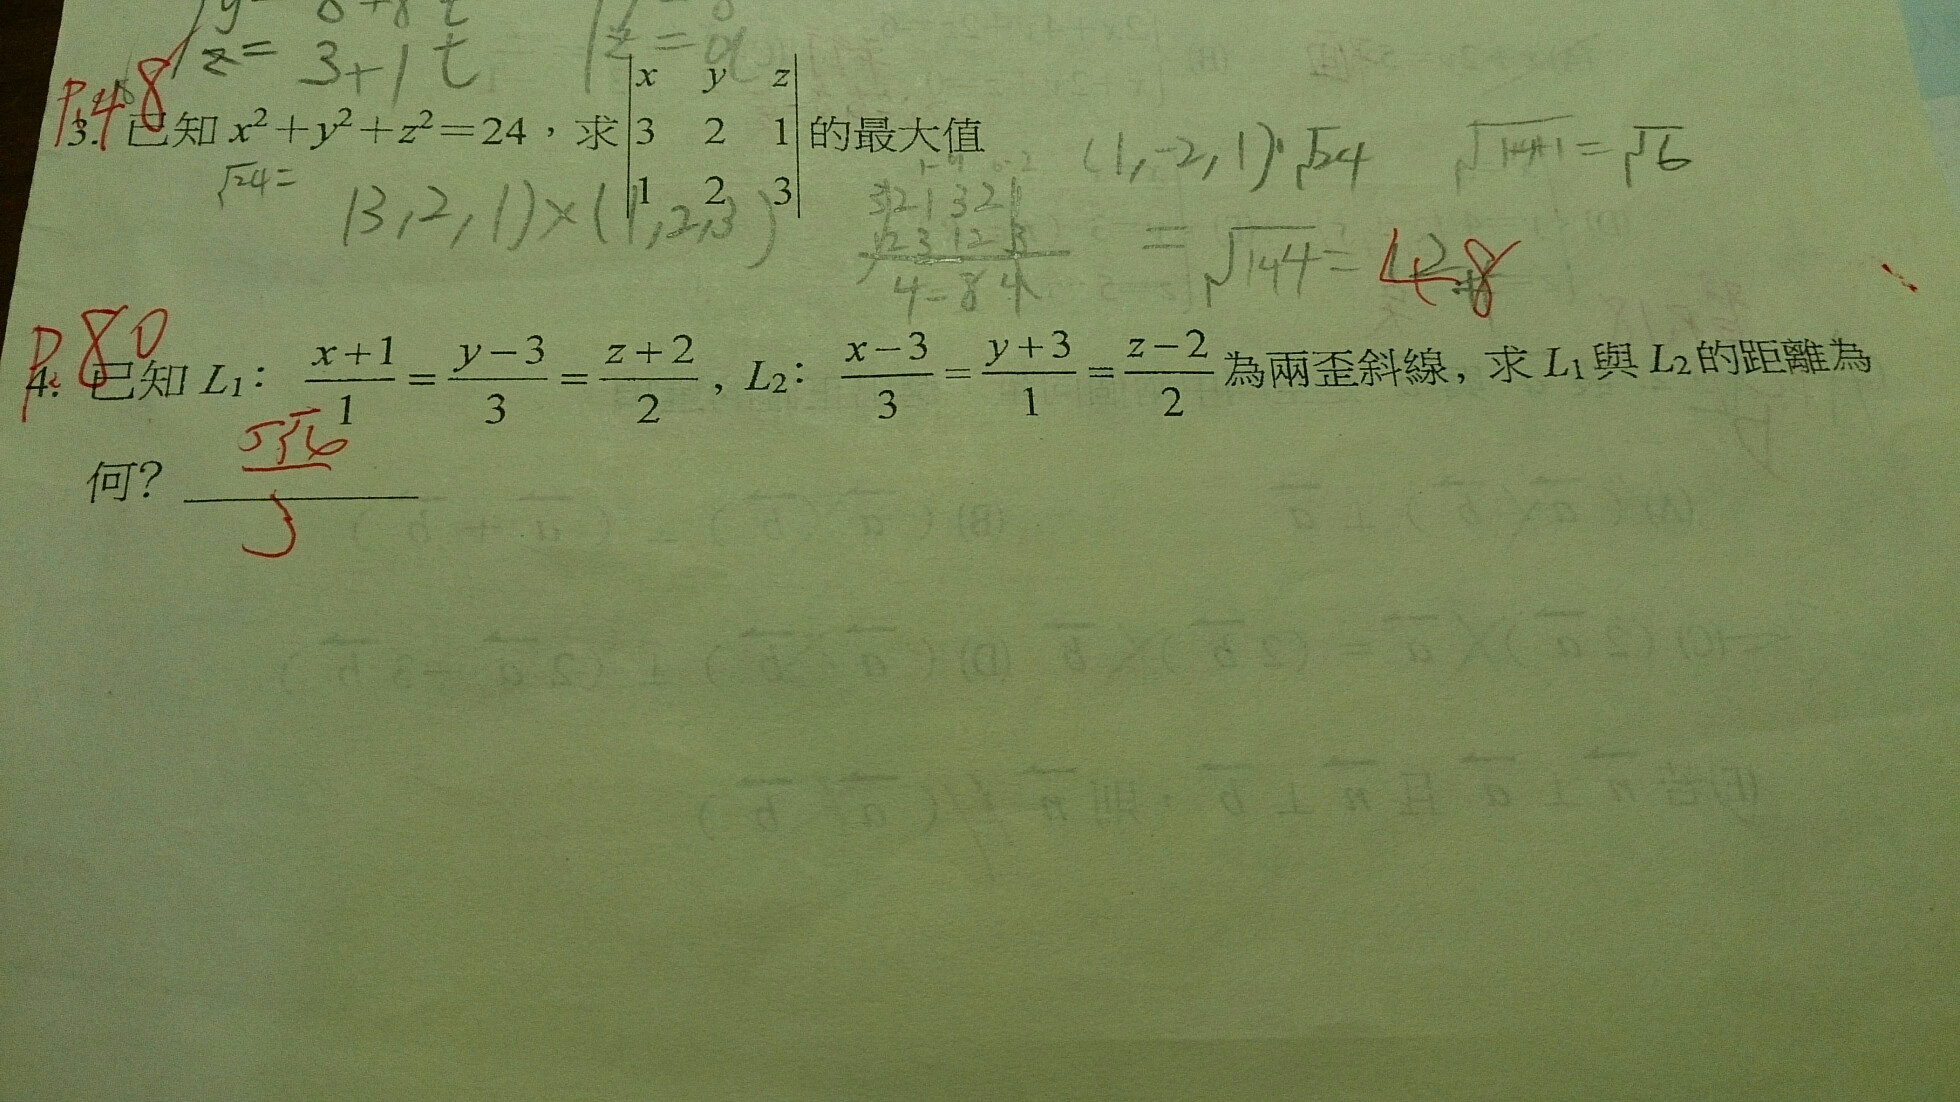 z = 3+1t
P.48
3. 已知 x²+y²+z²=24，求 |x y z| 的最大值
|3 2 1|
|1 2 3|
√24=
(3,2,1)×(1,2,3)
321321
123123
4 -8 4
(1,-2,1)·√24
√1+4+1 = √6
= √144 =
48
P.80
4. 已知 L₁： (x+1)/1 = (y−3)/3 = (z+2)/2 , L₂： (x−3)/3 = (y+3)/1 = (z−2)/2 為兩歪斜線, 求 L₁ 與 L₂ 的距離為
何？